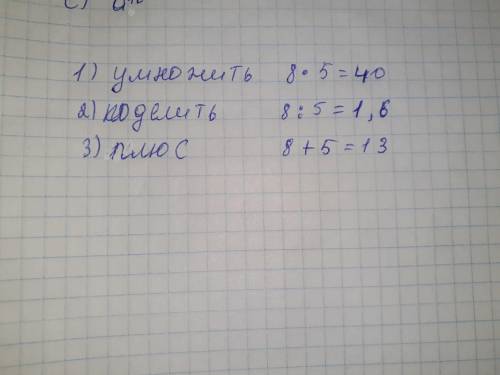 1) умножить 8 · 5 = 40
2) поделить 8 : 5 = 1,6
3) плюс 8 + 5 = 13